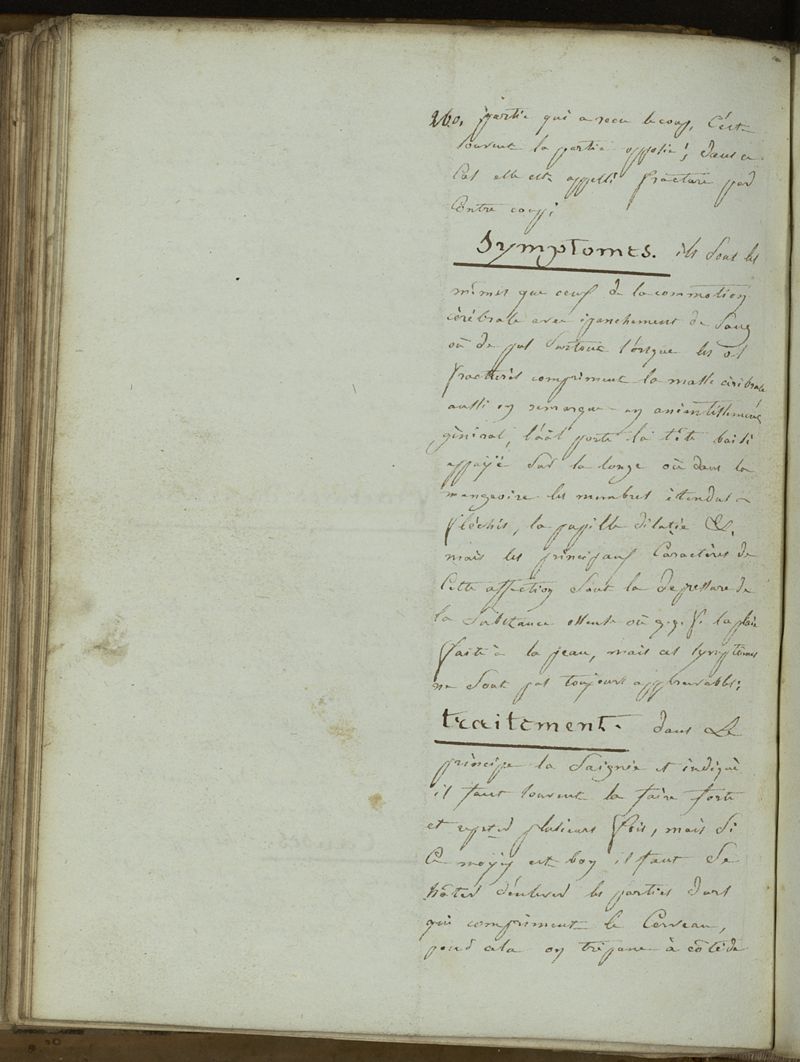 260. partie qui a recu le coup, C'est
souvent la partie opposée; dans ce
Cas elle est appellé fracture par
Contre coup;
Symptomes. ils Sont les
mêmes que ceux de la commotion
cérébrale avec épanchement de Sang
où de pas Surtout lorsque les os
fracturés compriment la masse cérébrale
aussi on remarque un anéantissement
général, l'a&l porte la tête baissé
appuyé Sur la longe où dans la
mangeoire les membres étendus
fléchis, la pupille dilatée &.
mais les principaux Caractères de
Cette affection Sont la depressure de
la Substance osseuse où q.q. f. la plaie
faite à la peau, mais ces symptômes
ne Sont pas toujours appercevables;
traitement. dans Le
principe la Saignée est indiqué
il faut souvent la faire forte
et repeter plusieurs fois, mais Si
Ce moyen est bon il faut Se
hâter d'enlever les parties d'os
qui compriment le Cerveau,
pour cela on trépane à côté de